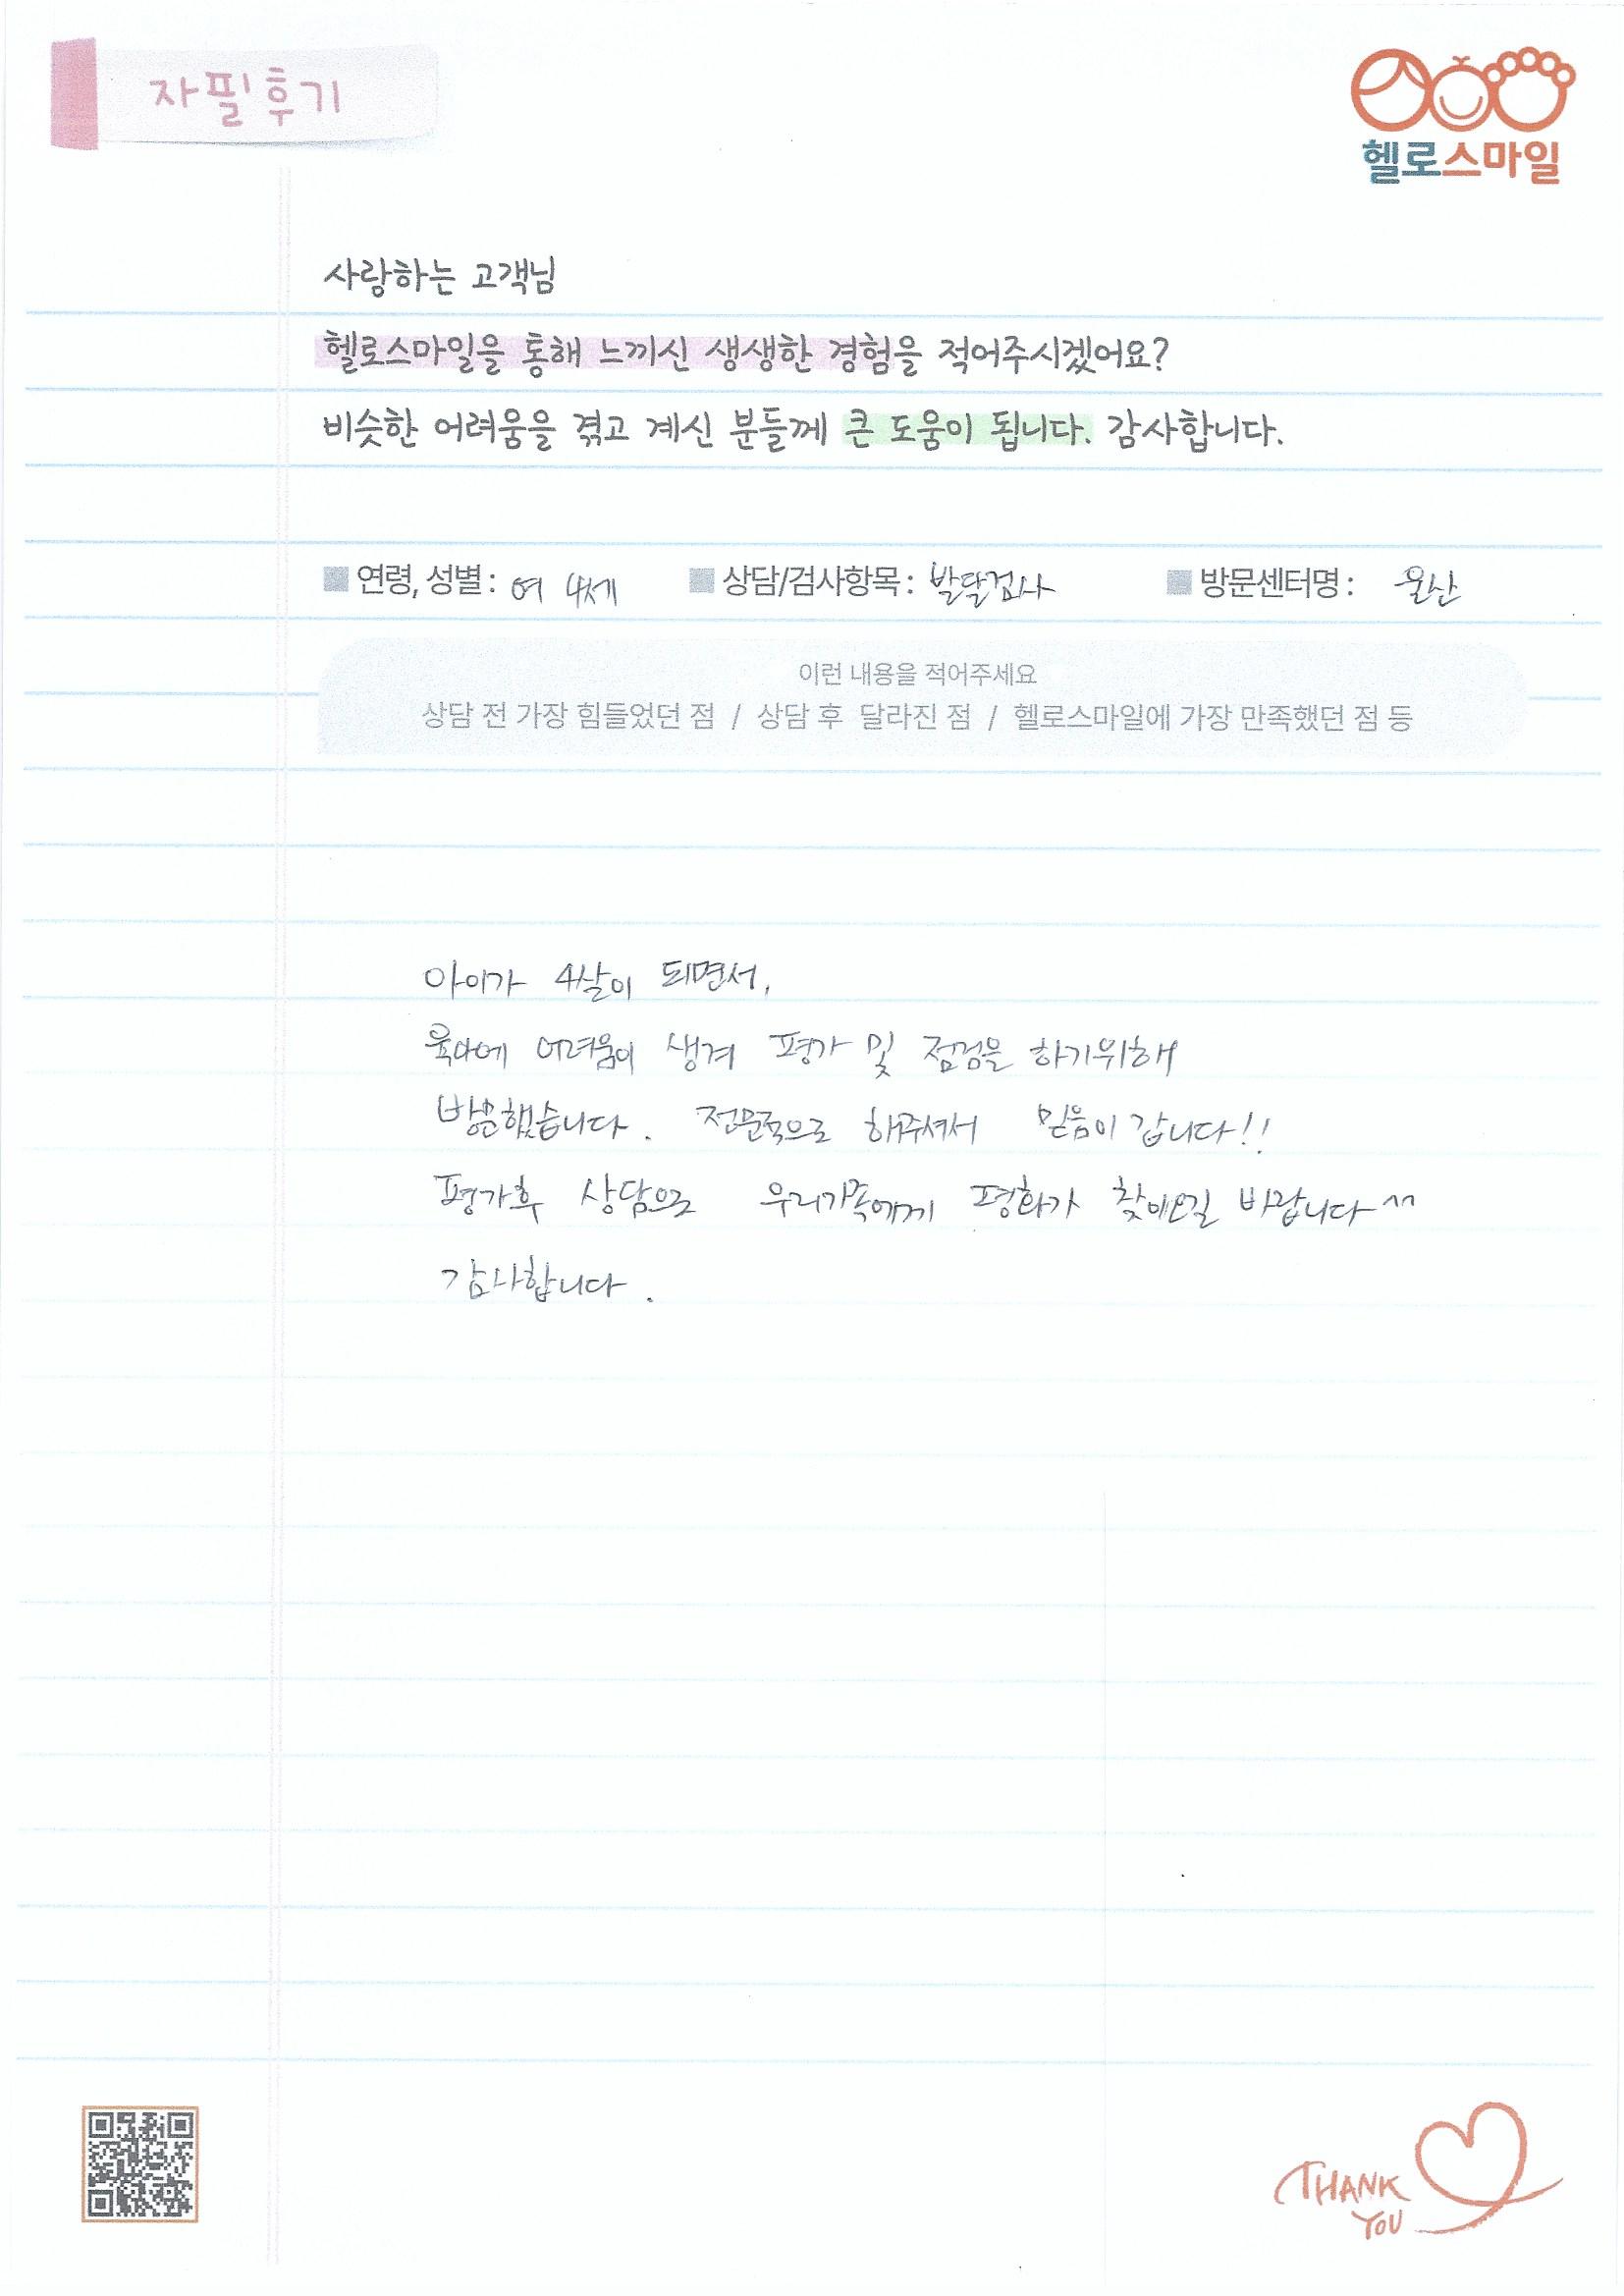 자필후기
헬로스마일
사랑하는 고객님
헬로스마일을 통해 느끼신 생생한 경험을 적어주시겠어요?
비슷한 어려움을 겪고 계신 분들께 큰 도움이 됩니다. 감사합니다.
연령, 성별 : 여 4세 상담/검사항목 : 발달검사 방문센터명 :
이런 내용을 적어주세요
상담 전 가장 힘들었던 점 / 상담 후 달라진 점 / 헬로스마일에 가장 만족했던 점 등
아이가 4살이 되면서,
육아에 어려움이 생겨 평가 및 점검을 하기위해
방문했습니다. 전문적으로 해주셔서 믿음이 갑니다!!
평가후 상담으로 우리가족에게 평화가 찾아오길 바랍니다^^
감사합니다.
THANK
YOU